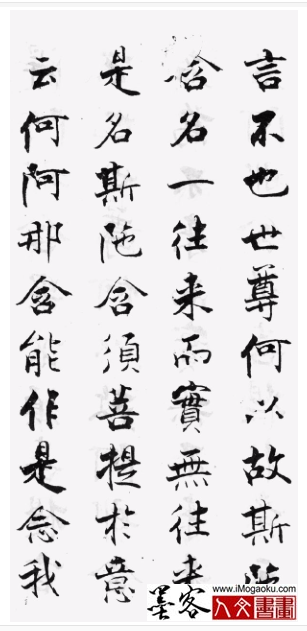 言不也世尊何以故斯陁
含名一往来而實無往来
是名斯陁含須菩提於意
云何阿那含能作是念我
www.iMogaoku.com
墨客
人文書畫